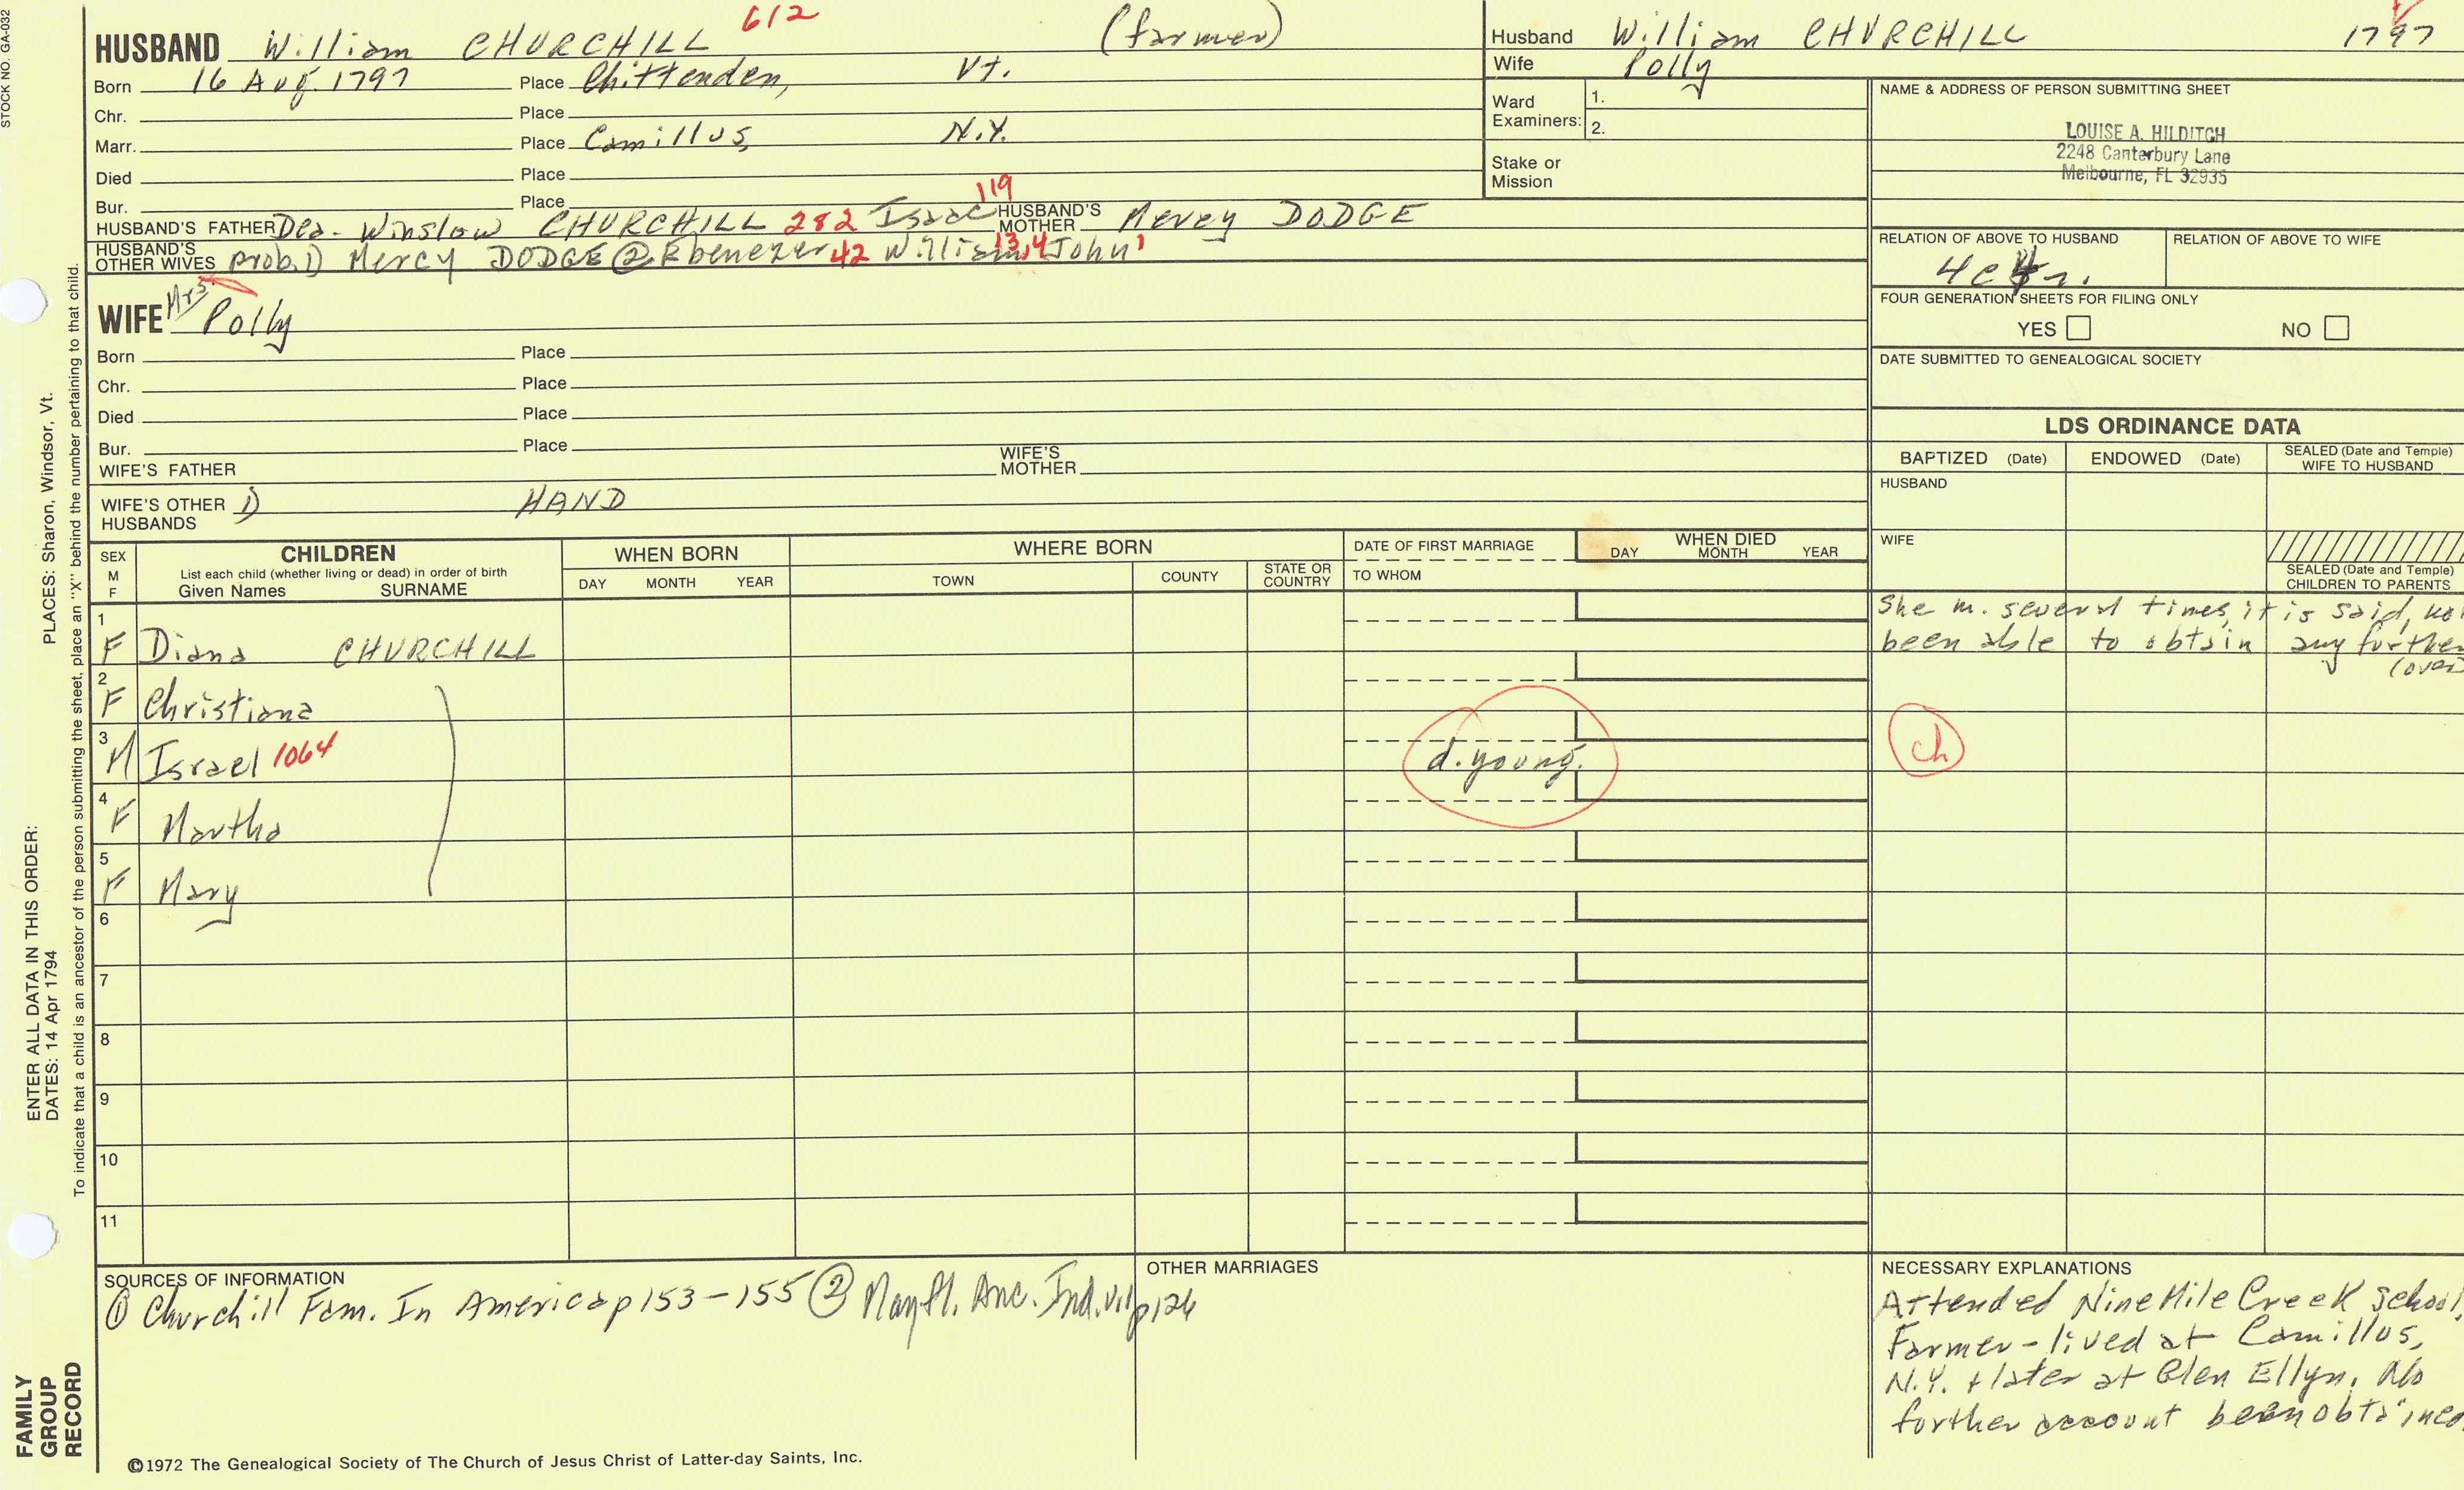 STOCK NO. GA-032
HUSBAND William CHURCHILL 612 (farmer)
Born 16 Aug. 1797 Place Chittenden, Vt.
Chr. Place
Marr. Place Camillus, N.Y.
Died Place
Bur. Place
HUSBAND'S FATHER Dea. Winslow CHURCHILL 282 Isaac 119 HUSBAND'S MOTHER Mercy DODGE
HUSBAND'S OTHER WIVES prob. 1) Mercy DODGE @ Ebenezer 42 William 13,4 John 1
WIFE Mrs. Polly
Born Place
Chr. Place
Died Place
Bur. Place
WIFE'S FATHER WIFE'S MOTHER
WIFE'S OTHER HUSBANDS 1) HAND
Husband William CHURCHILL 1797
Wife Polly
Ward Examiners: 1.
2.
Stake or Mission
NAME & ADDRESS OF PERSON SUBMITTING SHEET
LOUISE A. HILDITCH
2248 Canterbury Lane
Melbourne, FL 32935
RELATION OF ABOVE TO HUSBAND RELATION OF ABOVE TO WIFE
FOUR GENERATION SHEETS FOR FILING ONLY
YES NO
DATE SUBMITTED TO GENEALOGICAL SOCIETY
LDS ORDINANCE DATA
BAPTIZED (Date) ENDOWED (Date) SEALED (Date and Temple) WIFE TO HUSBAND
HUSBAND
WIFE
SEALED (Date and Temple) CHILDREN TO PARENTS
SEX M F CHILDREN WHEN BORN WHERE BORN DATE OF FIRST MARRIAGE WHEN DIED
List each child (whether living or dead) in order of birth
Given Names SURNAME DAY MONTH YEAR TOWN COUNTY STATE OR COUNTRY TO WHOM DAY MONTH YEAR
1 F Diana CHURCHILL
She m. several times, it is said, not
been able to obtain any further
(over)
2 F Christiana
3 M Israel 1064 d. young. ch
4 F Martha
5 F Mary
6
7
8
9
10
11
SOURCES OF INFORMATION
① Churchill Fam. In America p 153-155 ② Mayfl. Anc. Ind. p 126
OTHER MARRIAGES
NECESSARY EXPLANATIONS
Attended Nine Mile Creek school,
Farmer - lived at Camillus,
N.Y. + later at Glen Ellyn. No
further account been obtained
©1972 The Genealogical Society of The Church of Jesus Christ of Latter-day Saints, Inc.
FAMILY GROUP RECORD
ENTER ALL DATA IN THIS ORDER:
DATES: 14 Apr 1794
PLACES: Sharon, Windsor, Vt.
To indicate that a child is an ancestor of the person submitting the sheet, place an "X" behind the number pertaining to that child.